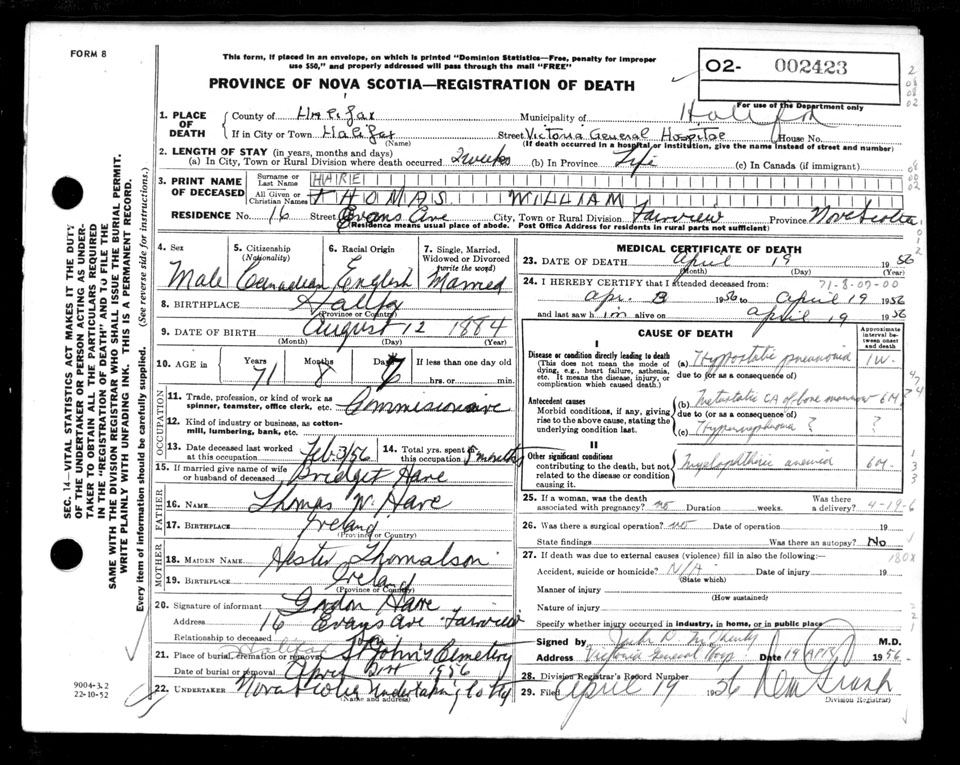 FORM 8
This form, if placed in an envelope, on which is printed "Dominion Statistics—Free, penalty for improper
use $50," and properly addressed will pass through the mail "FREE"
PROVINCE OF NOVA SCOTIA—REGISTRATION OF DEATH
O2- 002423
For use of the Department only
1. PLACE OF DEATH
County of Halifax Municipality of Halifax
If in City or Town Halifax (Name) Street Victoria General Hospital House No.
(If death occurred in a hospital or institution, give the name instead of street and number)
2. LENGTH OF STAY (in years, months and days)
(a) In City, Town or Rural Division where death occurred 2 weeks (b) In Province Life (c) In Canada (if immigrant)
3. PRINT NAME OF DECEASED
Surname or Last Name HARE
All Given or Christian Names THOMAS WILLIAM
RESIDENCE No. 16 Street Evans Ave City, Town or Rural Division Fairview Province Nova Scotia
(Residence means usual place of abode. Post Office Address for residents in rural parts not sufficient)
4. Sex Male
5. Citizenship (Nationality) Canadian
6. Racial Origin English
7. Single, Married, Widowed or Divorced (write the word) Married
8. BIRTHPLACE Halifax
(Province or Country)
9. DATE OF BIRTH August 12 1884
(Month) (Day) (Year)
10. AGE in Years 71 Months 8 Days 7 If less than one day old
hrs. or min.
OCCUPATION
11. Trade, profession, or kind of work as
spinner, teamster, office clerk, etc. Commissionaire
12. Kind of industry or business, as cotton-
mill, lumbering, bank, etc.
13. Date deceased last worked
at this occupation Feb. 3/56
14. Total yrs. spent in
this occupation months
15. If married give name of wife
or husband of deceased Bridget Hare
FATHER
16. NAME Thomas W. Hare
17. BIRTHPLACE Ireland
(Province or Country)
MOTHER
18. MAIDEN NAME Hester Thomalson
19. BIRTHPLACE Ireland
(Province or Country)
20. Signature of informant Gordon Hare
Address 16 Evans Ave Fairview
Relationship to deceased Son
21. Place of burial, cremation or removal Halifax St John's Cemetery
Date of burial or removal April 21st 1956
22. UNDERTAKER Nova Scotia Undertaking Co
(Name and address)
9004-3.2
22-10-52
SEC. 14—VITAL STATISTICS ACT MAKES IT THE DUTY
OF THE UNDERTAKER OR PERSON ACTING AS UNDER-
TAKER TO OBTAIN ALL THE PARTICULARS REQUIRED
IN THE "REGISTRATION OF DEATH" AND TO FILE THE
SAME WITH THE DIVISION REGISTRAR WHO SHALL ISSUE THE BURIAL PERMIT.
WRITE PLAINLY WITH UNFADING INK. THIS IS A PERMANENT RECORD.
Every item of information should be carefully supplied. (See reverse side for instructions.)
MEDICAL CERTIFICATE OF DEATH
23. DATE OF DEATH April 19 1956
(Month) (Day) (Year)
71-8-07-00
24. I HEREBY CERTIFY that I attended deceased from:
Apr. 1956 to April 19 1956
and last saw him alive on April 19 1956
CAUSE OF DEATH
Approximate interval between onset and death
I
Disease or condition directly leading to death
(This does not mean the mode of
dying, e.g., heart failure, asthenia,
etc. It means the disease, injury, or
complication which caused death.)
(a) Hypostatic pneumonia 1 W.
due to (or as a consequence of)
Antecedent causes
Morbid conditions, if any, giving
rise to the above cause, stating the
underlying condition last.
(b) Metastatic CA of bone marrow 6M ?
due to (or as a consequence of)
(c) Hypernephroma ? ?
II
Other significant conditions
contributing to the death, but not
related to the disease or condition
causing it.
Myelophthisic anemia 6M.
25. If a woman, was the death
associated with pregnancy? no Duration weeks. Was there
a delivery? 4-19-6
26. Was there a surgical operation? no Date of operation 19
State findings Was there an autopsy? No
27. If death was due to external causes (violence) fill in also the following: 180X
Accident, suicide or homicide? N/A Date of injury 19
(State which)
Manner of injury
(How sustained)
Nature of injury
Specify whether injury occurred in industry, in home, or in public place
Signed by M.D.
Address Victoria General Hosp Date 19 APR 1956
28. Division Registrar's Record Number
29. Filed April 19 1956
Division Registrar)